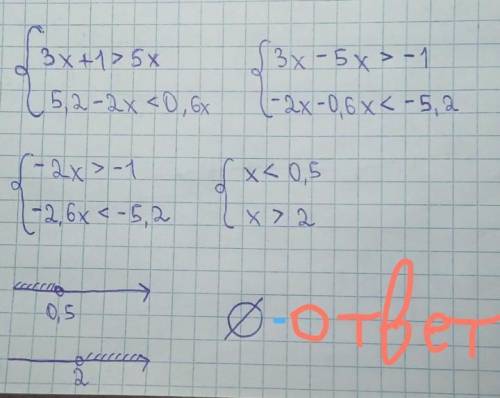 3x+1>5x
5,2-2x<0,6x
3x-5x>-1
-2x-0,6x<-5,2
-2x>-1
-2,6x<-5,2
x<0,5
x>2
0,5
2
∅-ответ